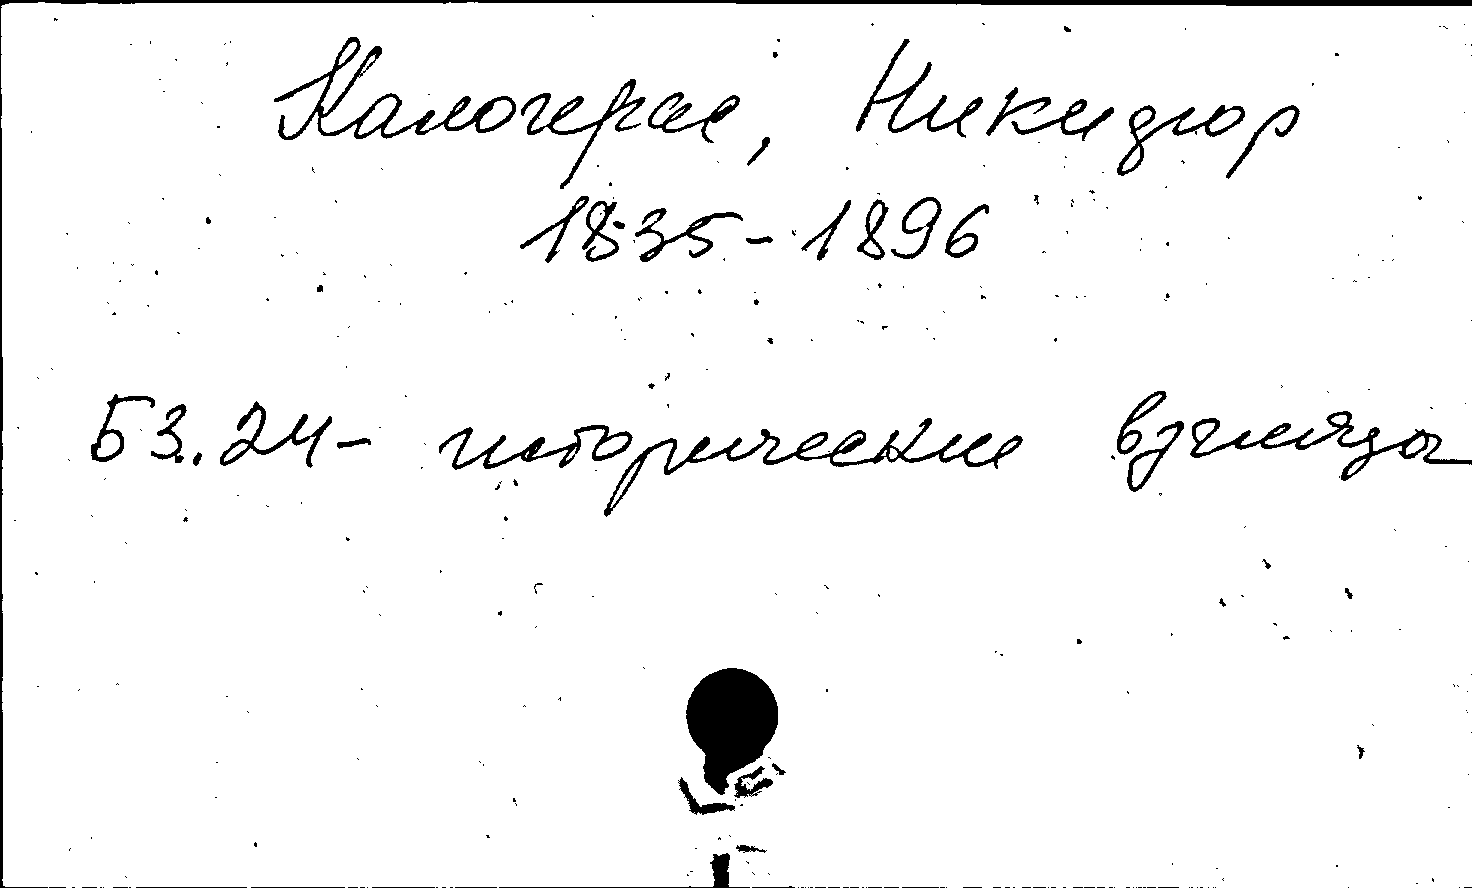 Калогерас, Никифор
1835-1896
53.24- исторические взгляды